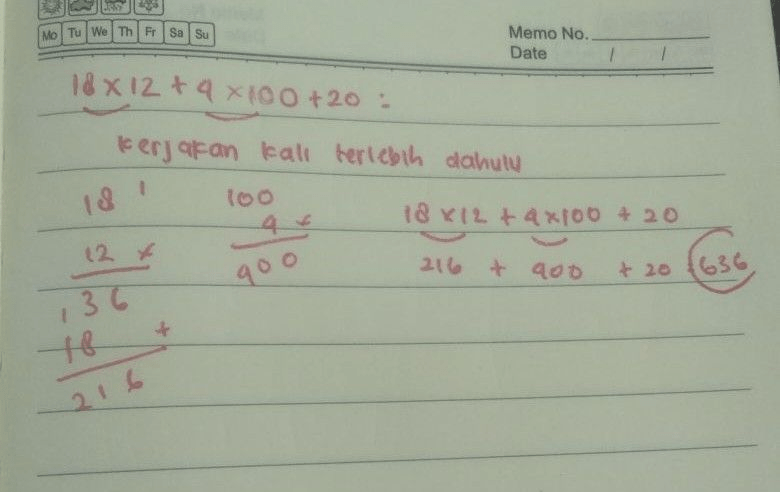 Mo Tu We Th Fr Sa Su
Memo No.
Date / /
18 x 12 + 4 x 100 + 20 =
kerjakan kali terlebih dahulu
18 1
12 x
136
18 +
216
100
4 x
400
18 x 12 + 4 x 100 + 20
216 + 400 + 20 = 636